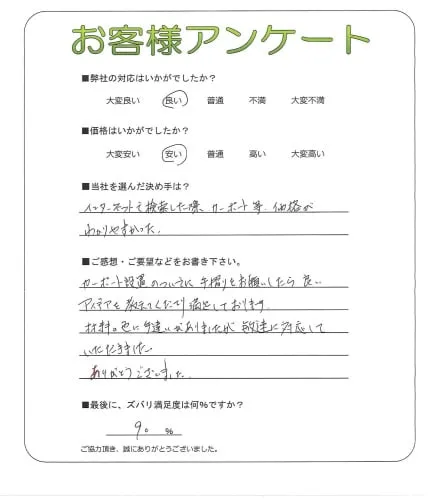 お客様アンケート
■弊社の対応はいかがでしたか?
大変良い 良い 普通 不満 大変不満
■価格はいかがでしたか?
大変安い 安い 普通 高い 大変高い
■当社を選んだ決め手は?
インターネットで検索した際、カーポート等、価格が
わかりやすかった。
■ご感想・ご要望などをお書き下さい。
カーポート設置のついでに手摺りをお願いしたら良い
アイデアを教えてくださり満足しております。
材料の色に手違いがありましたが、敏速に対応して
いただきました。
ありがとうございました。
■最後に、ズバリ満足度は何%ですか?
90 %
ご協力頂き、誠にありがとうございました。